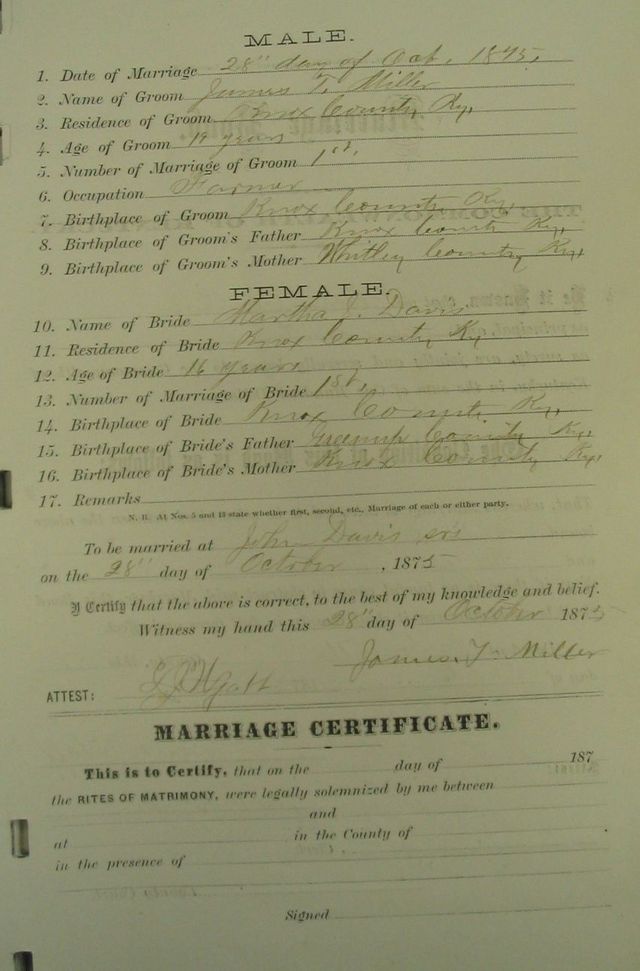 MALE.
1. Date of Marriage 28" day of Oct, 1875,
2. Name of Groom James T. Miller
3. Residence of Groom Knox County Ky,
4. Age of Groom 19 years
5. Number of Marriage of Groom 1st,
6. Occupation Farmer
7. Birthplace of Groom Knox County Ky,
8. Birthplace of Groom's Father Knox County Ky,
9. Birthplace of Groom's Mother Whitley County Ky,
FEMALE.
10. Name of Bride Martha J. Davis
11. Residence of Bride Knox County Ky
12. Age of Bride 16 years
13. Number of Marriage of Bride 1st,
14. Birthplace of Bride Knox County Ky,
15. Birthplace of Bride's Father Greenup County Ky,
16. Birthplace of Bride's Mother Knox County Ky,
17. Remarks
N. B. At Nos. 5 and 13 state whether first, second, etc., Marriage of each or either party.
To be married at John Davis
on the 28" day of October, 1875
I Certify that the above is correct, to the best of my knowledge and belief.
Witness my hand this 28" day of October 1875
James T. Miller
ATTEST:
MARRIAGE CERTIFICATE.
This is to Certify, that on the day of 187
the RITES OF MATRIMONY, were legally solemnized by me between
and
at in the County of
in the presence of
Signed